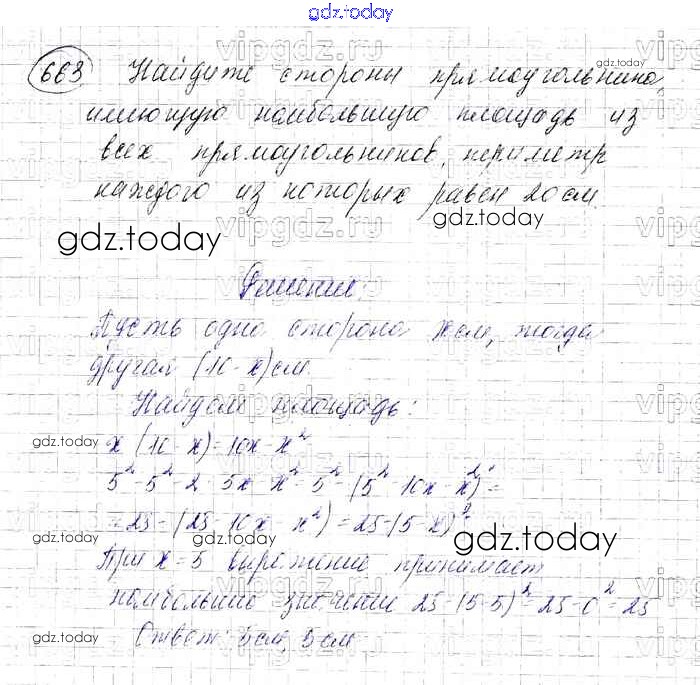 gdz.today
663 Найдите стороны прямоугольника,
имеющую наибольшую площадь из
всех прямоугольников, периметр
каждого из которых равен 20 см.
gdz.today
gdz.today
Решение:
Пусть одна сторона x см, тогда
другая (10-x) см.
Найдем площадь:
gdz.today
gdz.today
x (10-x) = 10x - x²
5² - 5² - 2 5x x² = 5² - (5² 10x x²) =
= 25 - (25 10x x²) = 25 - (5-x)²
gdz.today
gdz.today
При x = 5 выражение принимает
наибольшее значение 25 - (5-5)² = 25 - 0² = 25
gdz.today
gdz.today
Ответ: 5 см, 5 см